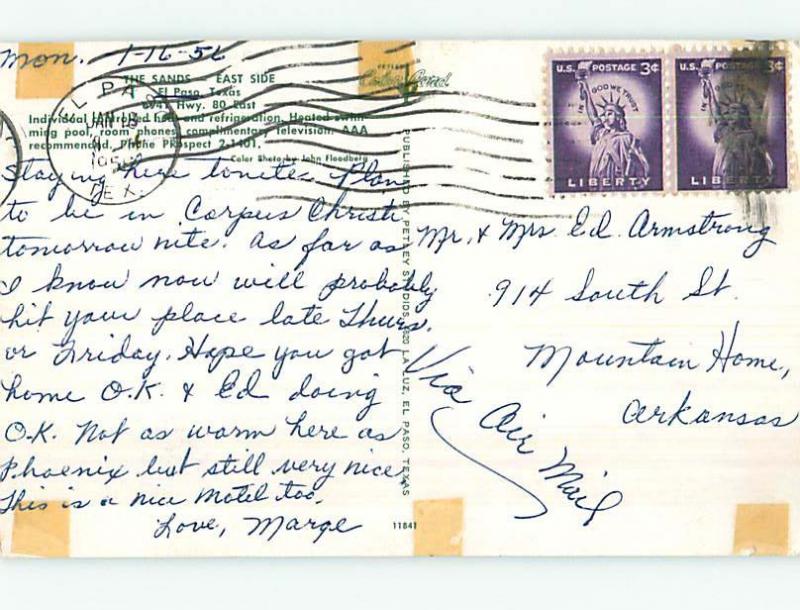 Mon. 1-16-56
THE SANDS — EAST SIDE
El Paso, Texas
6741 Hwy. 80 East
Individual controlled heat and refrigeration. Heated swim-
ming pool, room phones, complimentary television. AAA
recommended. Phone PRospect 2-1401.
Color Photo by John Floodberg
EL PASO
JAN 16
195
TEX.
Staying here tonite. Plan
to be in Corpus Christi
tomorrow nite. As far as
I know now will probably
hit your place late Thurs.
or Friday. Hope you got
home O.K. & Ed doing
O.K. Not as warm here as
Phoenix but still very nice.
This is a nice Motel too.
Love, Marge
11841
PUBLISHED BY PETLEY STUDIOS, LA LUZ, EL PASO, TEXAS
PETLEY
Color Card
U.S. POSTAGE 3¢
IN GOD WE TRUST
LIBERTY
U.S. POSTAGE 3¢
LIBERTY
Mr. & Mrs. Ed. Armstrong
914 South St.
Mountain Home,
Arkansas
Via Air Mail